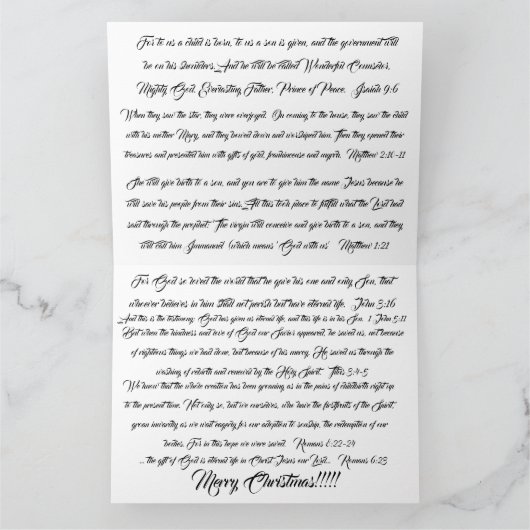 For to us a child is born, to us a son is given, and the government will
be on his shoulders. And he will be called Wonderful Counselor,
Mighty God, Everlasting Father, Prince of Peace. Isaiah 9:6
When they saw the star, they were overjoyed. On coming to the house, they saw the child
with his mother Mary, and they bowed down and worshiped him. Then they opened their
treasures and presented him with gifts of gold, frankincense and myrrh. Matthew 2:10-11
She will give birth to a son, and you are to give him the name Jesus because he
will save his people from their sins. All this took place to fulfill what the Lord had
said through the prophet: 'The virgin will conceive and give birth to a son, and they
will call him Immanuel (which means 'God with us'. Matthew 1:21
For God so loved the world that he gave his one and only Son, that
whoever believes in him shall not perish but have eternal life. John 3:16
And this is the testimony: God has given us eternal life, and this life is in his Son. 1 John 5:11
But when the kindness and love of God our Savior appeared, he saved us, not because
of righteous things we had done, but because of his mercy. He saved us through the
washing of rebirth and renewal by the Holy Spirit. Titus 3:4-5
We know that the whole creation has been groaning as in the pains of childbirth right up
to the present time. Not only so, but we ourselves, who have the firstfruits of the Spirit,
groan inwardly as we wait eagerly for our adoption to sonship, the redemption of our
bodies. For in this hope we were saved. Romans 8:22-24
... the gift of God is eternal life in Christ Jesus our Lord... Romans 6:23
Merry Christmas!!!!!